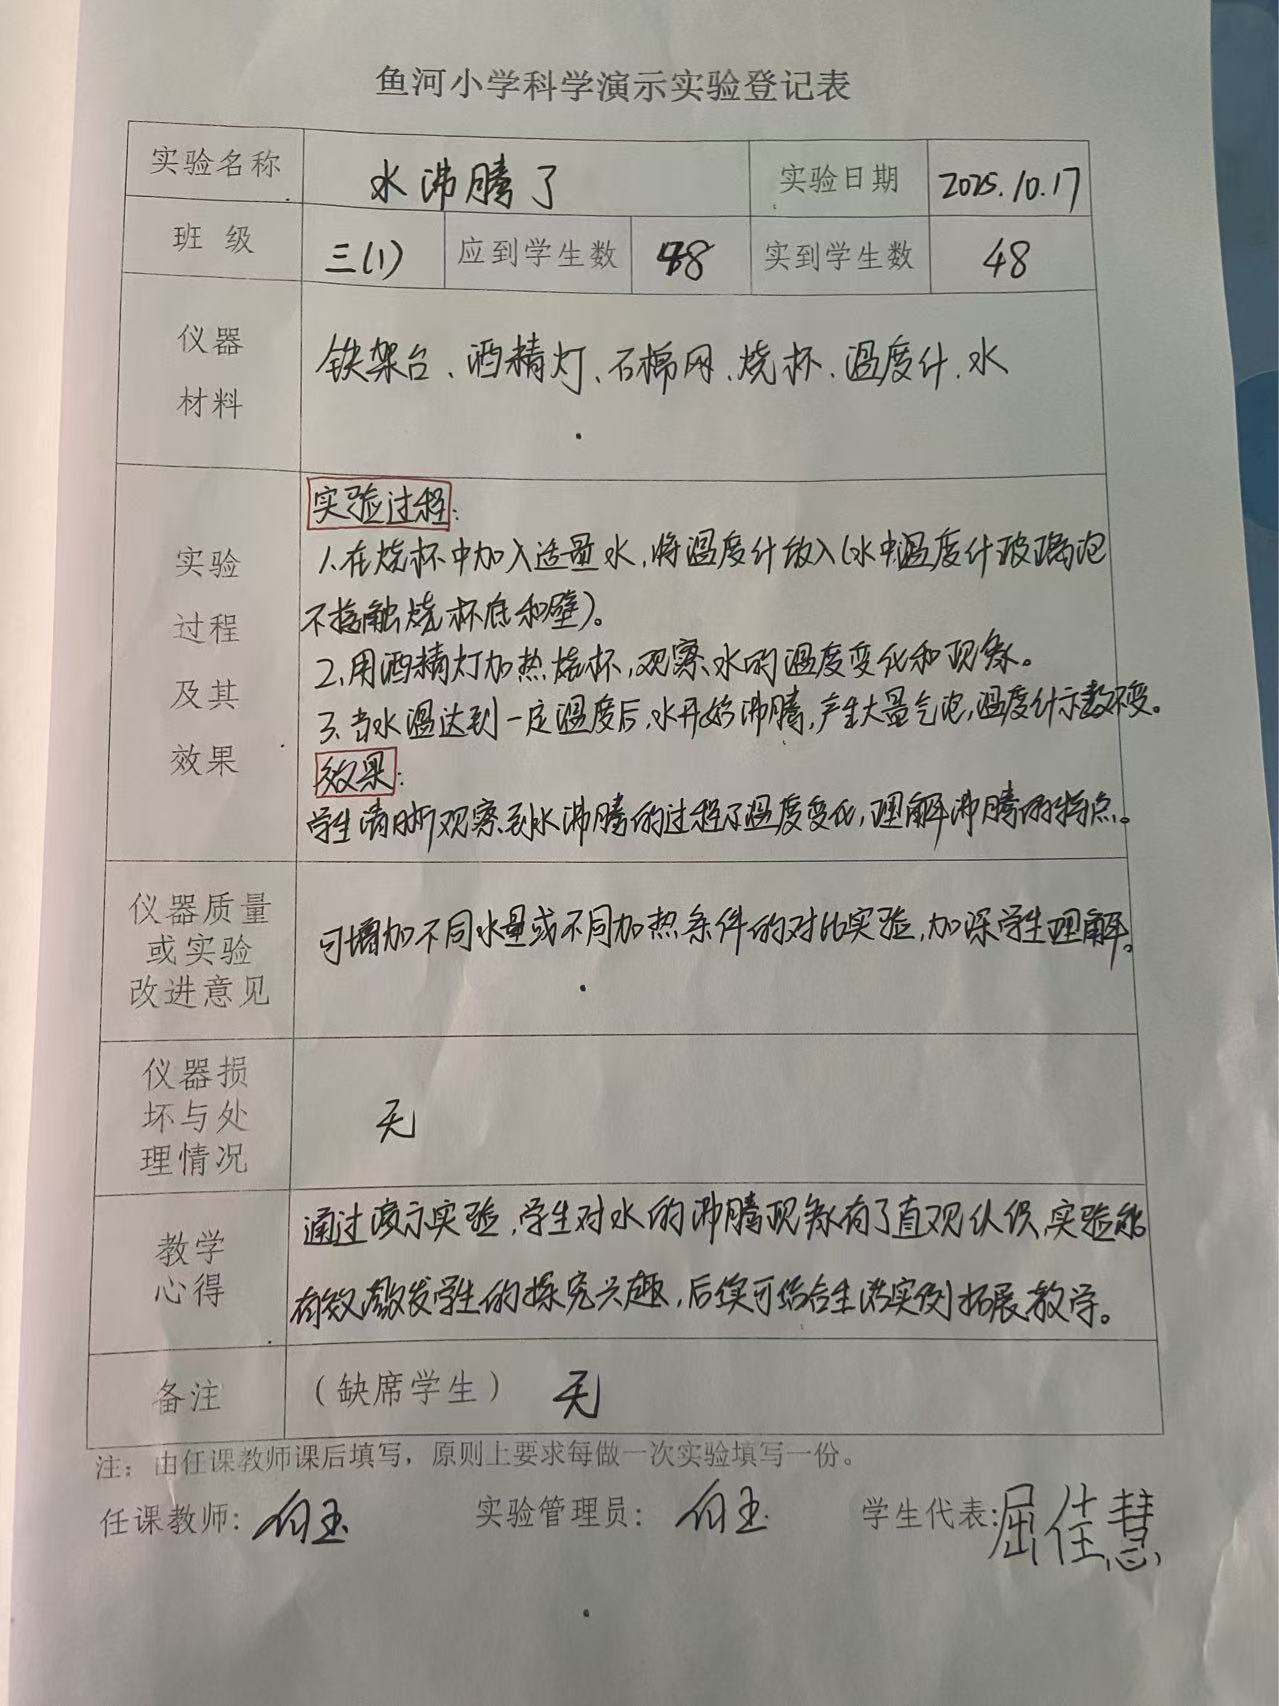 鱼河小学科学演示实验登记表
实验名称 水沸腾了 实验日期 2025.10.17
班级 三(1) 应到学生数 48 实到学生数 48
仪器
材料
铁架台、酒精灯、石棉网、烧杯、温度计、水
实验
过程
及其
效果
实验过程:
1.在烧杯中加入适量水,将温度计放入(水中温度计玻璃泡
不接触烧杯底和壁)。
2.用酒精灯加热烧杯,观察水的温度变化和现象。
3.当水温达到一定温度后,水开始沸腾,产生大量气泡,温度计示数不变。
效果:
学生清晰观察到水沸腾的过程了温度变化,理解沸腾的特点。
仪器质量
或实验
改进意见
可增加不同水量或不同加热条件的对比实验,加深学生理解。
仪器损
坏与处
理情况
无
教学
心得
通过演示实验,学生对水的沸腾现象有了直观认识,实验能
有效激发学生的探究兴趣,后续可结合生活实例拓展教学。
备注 (缺席学生) 无
注:由任课教师课后填写,原则上要求每做一次实验填写一份。
任课教师: 白玉 实验管理员: 白玉 学生代表: 屈佳慧